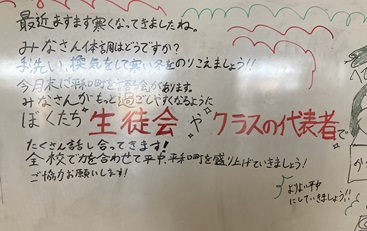 最近ますます寒くなってきましたね。
みなさん体調はどうですか?
手洗い、換気をして寒い冬をのりこえましょう!!
今月末に平和町を語る会があります。
みなさんがもっと過ごしやすくなるように
ぼくたち"生徒会"や"クラスの代表者"で
たくさん話し合ってきます!
全校で力を合わせて平中、平和町を盛り上げていきましょう!
ご協力お願いします!
よりよい平中
にしていきましょう!!